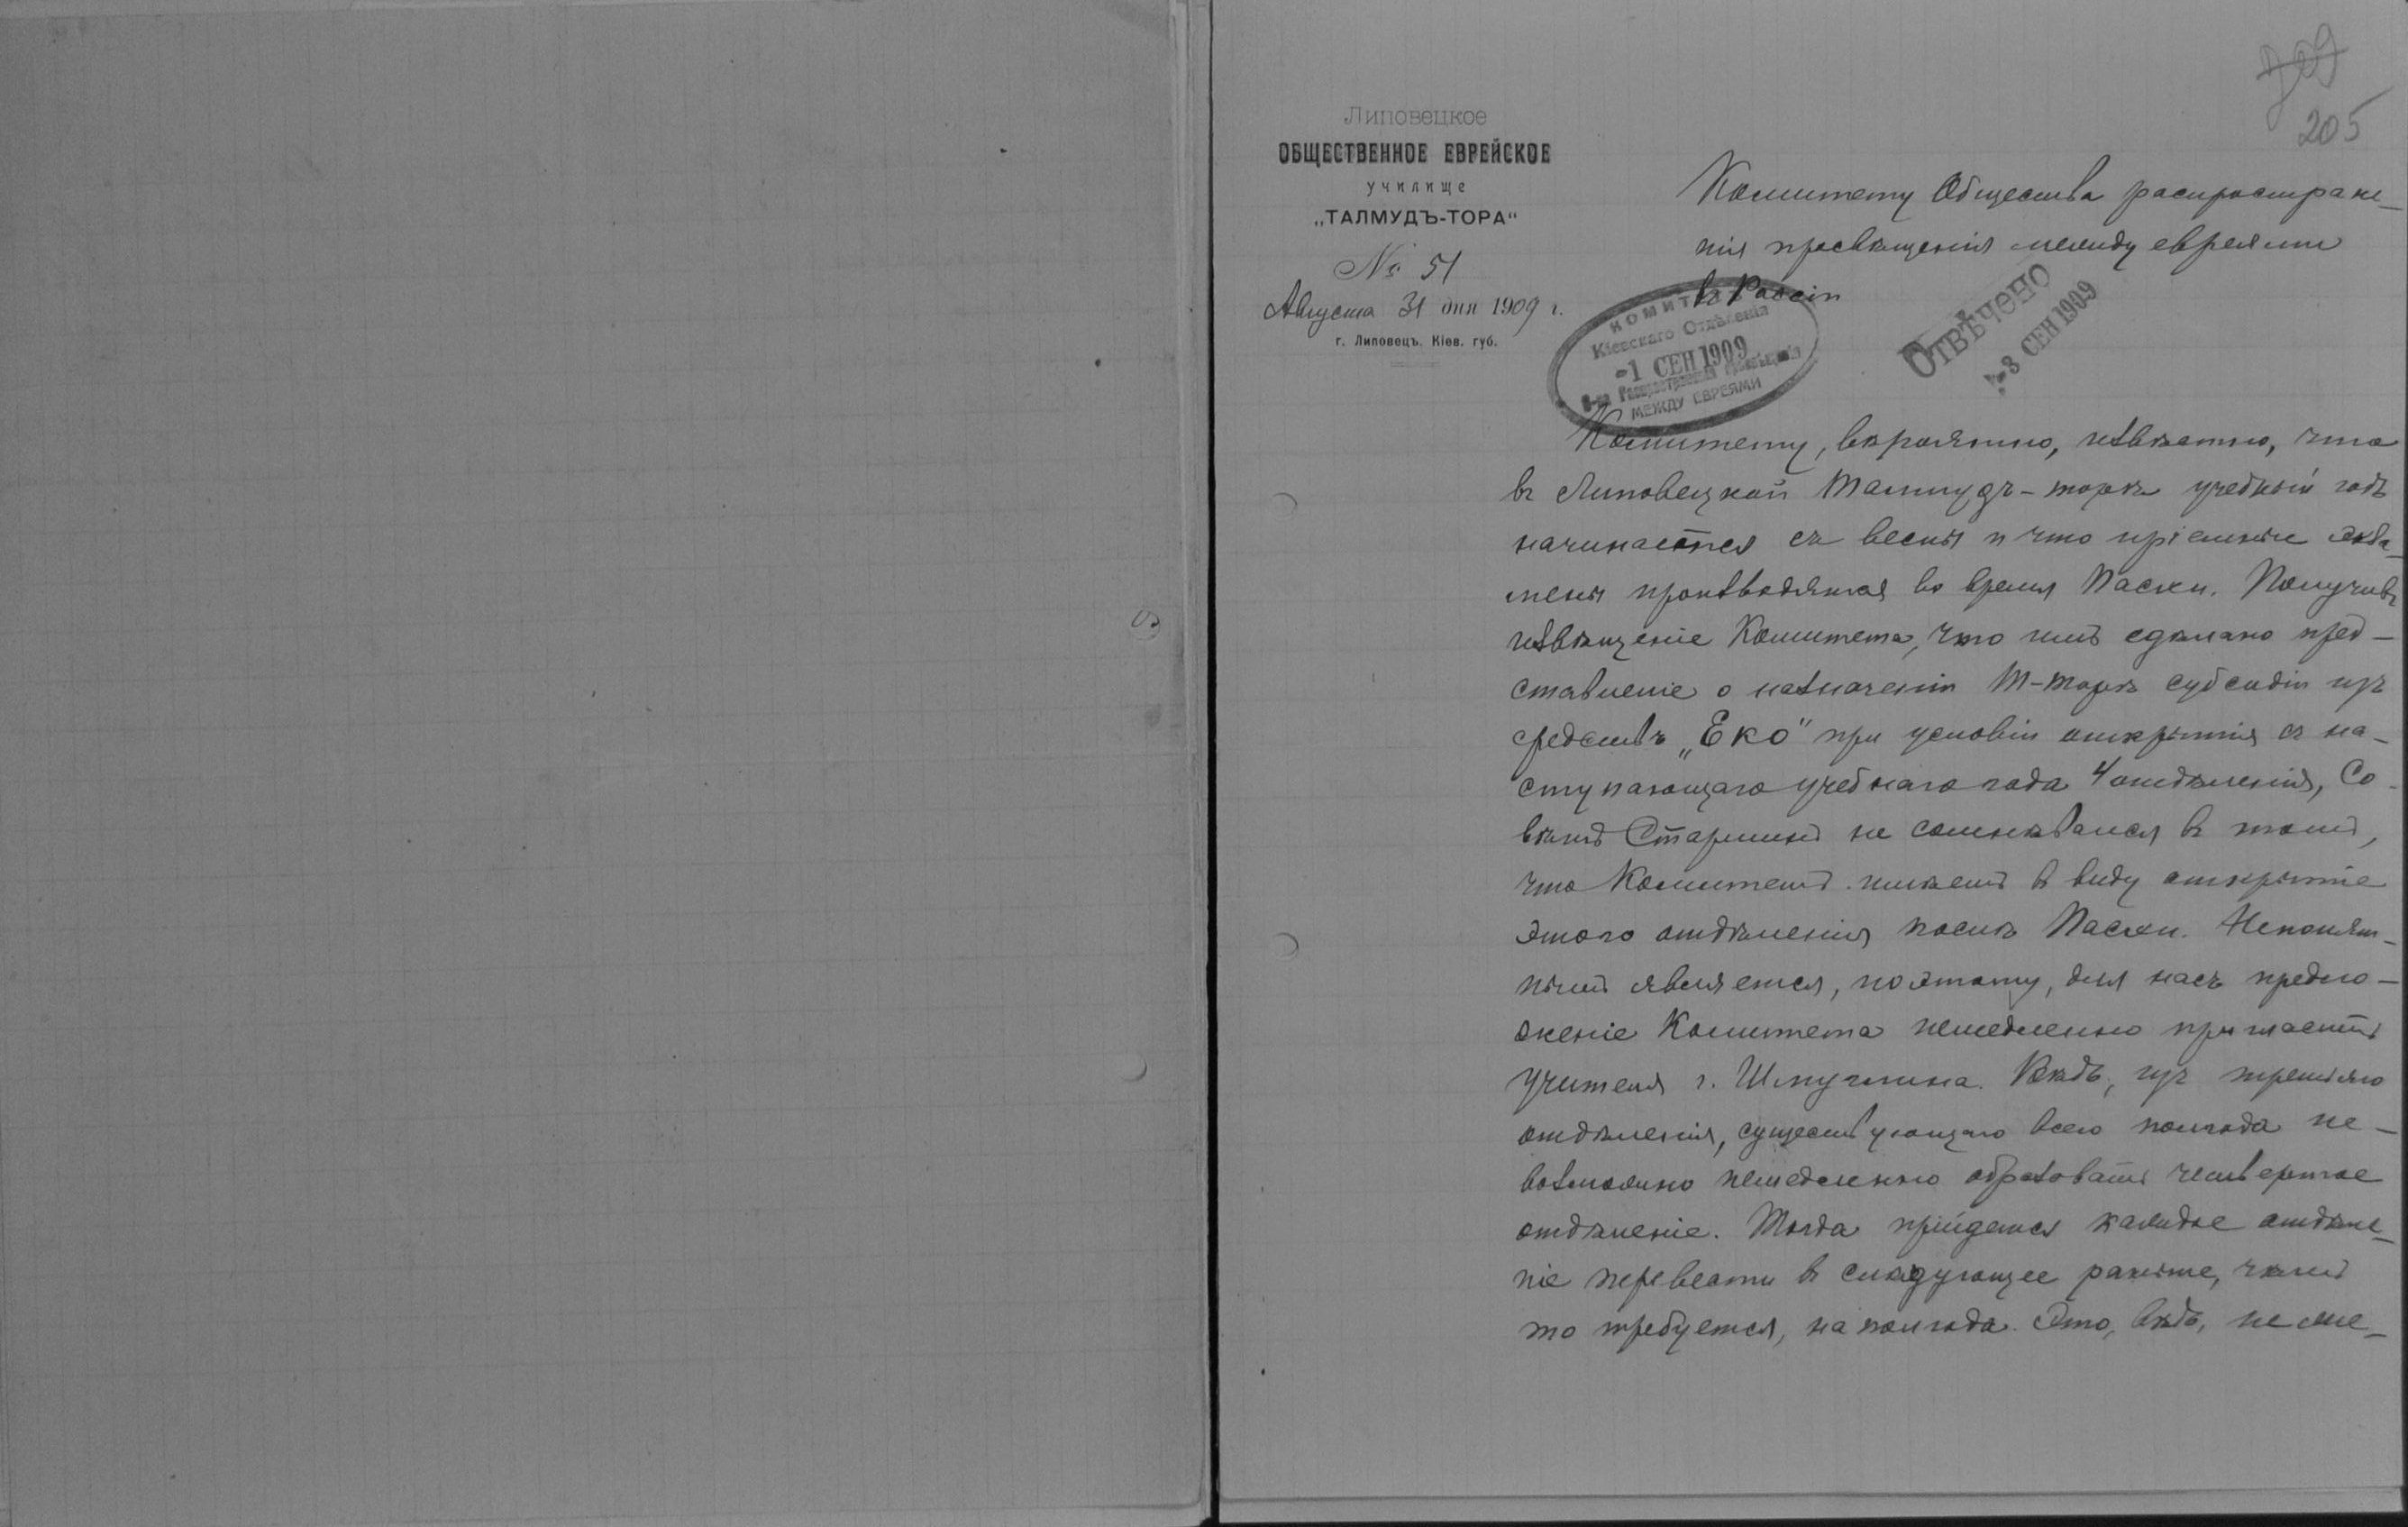 209
205
Липовецкое
ОБЩЕСТВЕННОЕ ЕВРЕЙСКОЕ
училище
„ТАЛМУДЪ-ТОРА“
№ 51
Августа 31 дня 1909 г.
г. Липовецъ, Кіев. губ.
Комитету Общества распростране-
нія просвѣщенія между евреями
въ Россіи
КОМИТЕТЪ
Кіевскаго Отдѣленія
-1 СЕН 1909
О-ва Распространенія Просвѣщенія
МЕЖДУ ЕВРЕЯМИ
ОТВѢЧЕНО
-3 СЕН 1909
Комитету, вѣроятно, извѣстно, что
въ Липовецкой Талмудъ-торѣ учебный годъ
начинается съ весны и что пріемные экза-
мены производятся во время Пасхи. Получивъ
извѣщеніе Комитета, что имъ сдѣлано пред-
ставленіе о назначеніи Т-торѣ субсидіи изъ
средствъ „Еко" при условіи открытія съ на-
ступающаго учебнаго года 4 отдѣленія, Со-
вѣтъ Старшинъ не сомнѣвался въ томъ,
что Комитетъ имѣетъ въ виду открытіе
этого отдѣленія послѣ Пасхи. Непонят-
нымъ является, поэтому, для насъ предло-
женіе Комитета немедленно пригласить
учителя г. Шмуглина. Вѣдь, изъ третьяго
отдѣленія, существующаго всего полгода не-
возможно немедленно образовать четвертое
отдѣленіе. Тогда прійдется каждое отдѣле-
ніе перевести въ слѣдующее раньше, чѣмъ
то требуется, на полгода. Это, вѣдь, не мо-